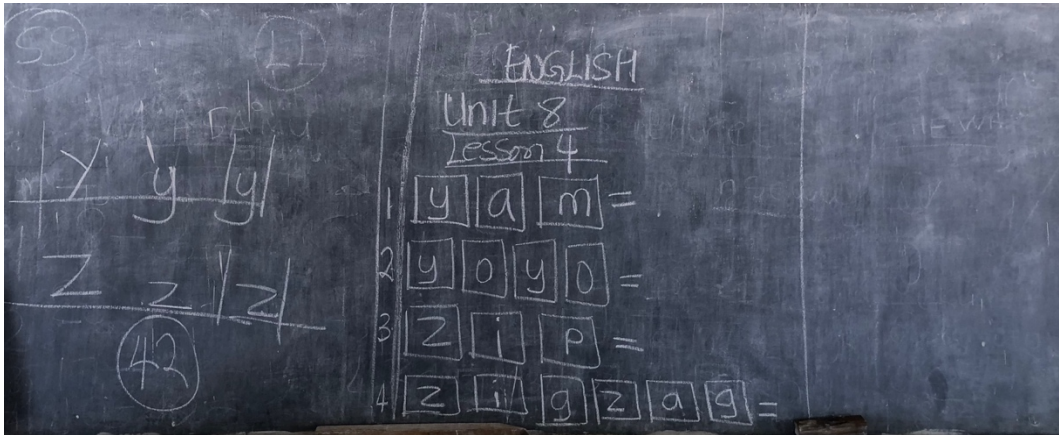 SS LL
Y y /y/
Z z /z/
42
ENGLISH
Unit 8
Lesson 4
1 y a m =
2 y o y o =
3 z i p =
4 z i g z a g =